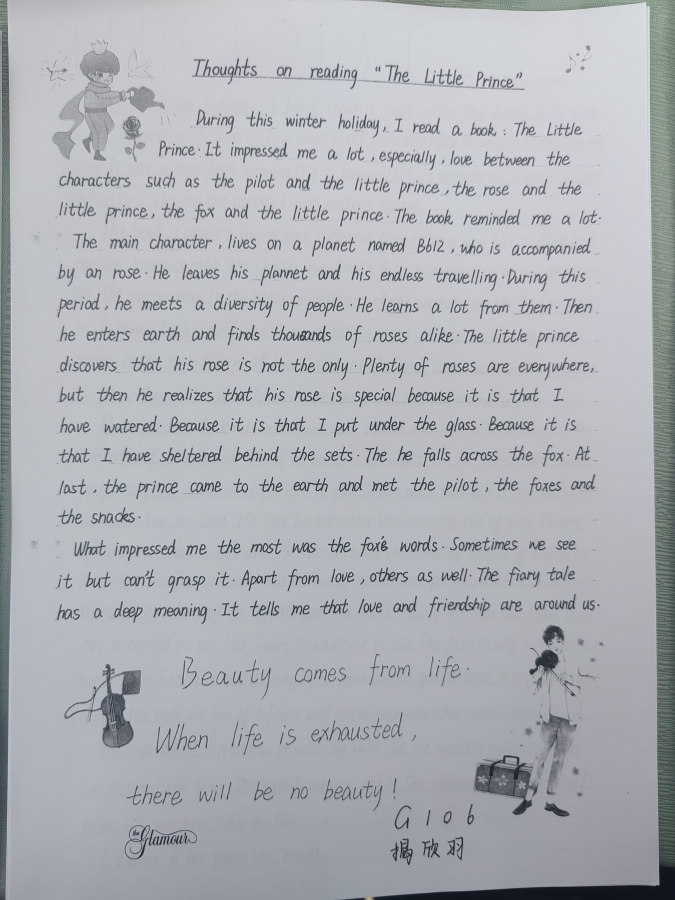 Thoughts on reading "The Little Prince"
During this winter holiday, I read a book: The Little
Prince. It impressed me a lot, especially, love between the
characters such as the pilot and the little prince, the rose and the
little prince, the fox and the little prince. The book reminded me a lot.
The main character, lives on a planet named B612, who is accompanied
by an rose. He leaves his plannet and his endless travelling. During this
period, he meets a diversity of people. He learns a lot from them. Then
he enters earth and finds thousands of roses alike. The little prince
discovers that his rose is not the only. Plenty of roses are everywhere,
but then he realizes that his rose is special because it is that I
have watered. Because it is that I put under the glass. Because it is
that I have sheltered behind the sets. The he falls across the fox. At
last, the prince came to the earth and met the pilot, the foxes and
the snacks.
What impressed me the most was the fox's words. Sometimes we see
it but can't grasp it. Apart from love, others as well. The fiary tale
has a deep meaning. It tells me that love and friendship are around us.
Beauty comes from life.
When life is exhausted,
there will be no beauty!
the Glamour
G106
揭欣羽